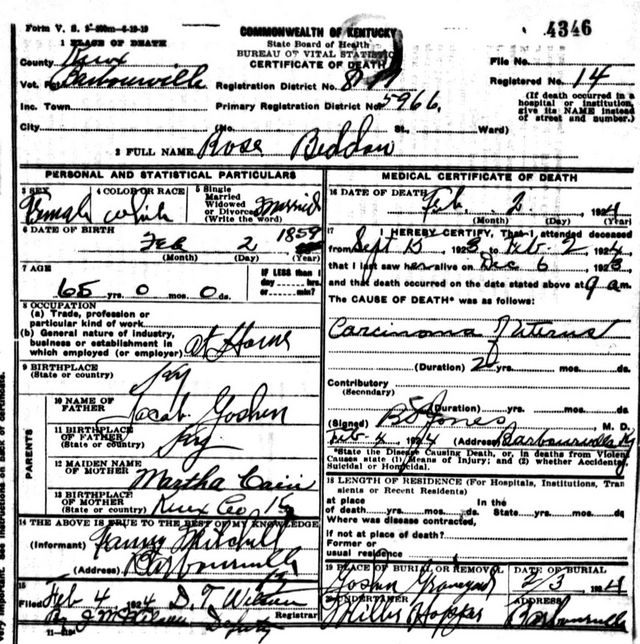 Form V. S. 1-600m-6-19-19
COMMONWEALTH OF KENTUCKY
State Board of Health
BUREAU OF VITAL STATISTICS
CERTIFICATE OF DEATH
4346
1 PLACE OF DEATH
County Knox
Vot. Pct Barbourville
Inc. Town
City
Registration District No.
Primary Registration District No. 5966
(No. St., Ward)
File No.
Registered No. 14
(If death occurred in a hospital or institution, give its NAME instead of street and number.)
2 FULL NAME Rose Beddow
PERSONAL AND STATISTICAL PARTICULARS
3 SEX Female
4 COLOR OR RACE White
5 Single Married Widowed or Divorced (Write the word) Married
6 DATE OF BIRTH
Feb 2 1859
(Month) (Day) (Year)
7 AGE
65 yrs. 0 mos. 0 ds.
IF LESS than 1 day ----- hrs. or ----- min.?
8 OCCUPATION
(a) Trade, profession or particular kind of work
(b) General nature of industry, business or establishment in which employed (or employer) at Home
9 BIRTHPLACE (State or country) Ky
PARENTS
10 NAME OF FATHER Jacob Goshen
11 BIRTHPLACE OF FATHER (State or country) Ky
12 MAIDEN NAME OF MOTHER Martha Cain
13 BIRTHPLACE OF MOTHER (State or country) Knox Co
14 THE ABOVE IS TRUE TO THE BEST OF MY KNOWLEDGE
(Informant) Fanny Mitchell
(Address) Barbourville
15
Filed Feb 4 1924 D. T. Wilson Registrar
Deputy
MEDICAL CERTIFICATE OF DEATH
16 DATE OF DEATH
Feb 2 1924
(Month) (Day) (Year)
17 I HEREBY CERTIFY, That I attended deceased
from Sept 15 1923 to Feb. 2 1924,
that I last saw her alive on Dec 6 1923
and that death occurred on the date stated above at 9 am.
The CAUSE OF DEATH* was as follows:
Carcinoma of uterus
(Duration) 2 yrs. mos. ds.
Contributory
(Secondary)
(Duration) yrs. mos. ds.
(Signed) Jones M. D.
Feb 4, 1924 (Address) Barbourville Ky
*State the Disease Causing Death, or, in deaths from Violent
Causes state (1) Means of Injury; and (2) whether Accidental,
Suicidal or Homicidal.
18 LENGTH OF RESIDENCE (For Hospitals, Institutions, Transients or Recent Residents)
At place of death yrs. mos. ds. In the State yrs. mos. ds.
Where was disease contracted,
If not at place of death?
Former or usual residence
19 PLACE OF BURIAL OR REMOVAL Goshen Graveyard
DATE OF BURIAL 2/3 1924
20 UNDERTAKER Hopper
ADDRESS Barbourville